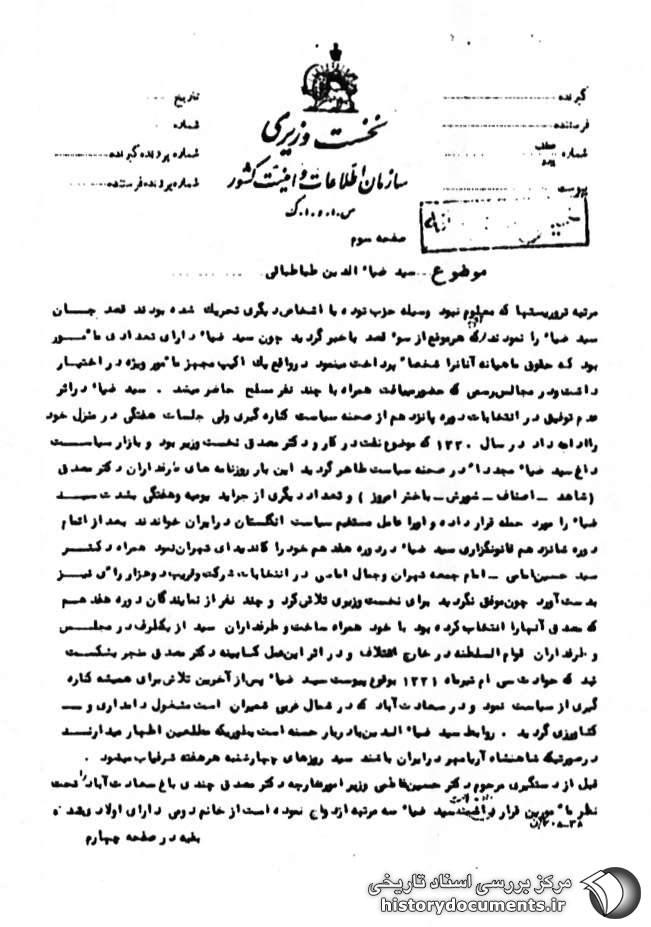 نخست وزیری
سازمان اطلاعات و امنیت کشور
س.ا.و.ا.ک
گیرنده
فرستنده
شماره
پیوست
تاریخ
شماره
شماره پرونده گیرنده
شماره پرونده فرستنده
صفحه سوم
موضوع سید ضیاء الدین طباطبائی
مرتبه تروریستها که معلوم نبود وسیله حزب توده یا اشخاص دیگری تحریک شده بودند قصد جان
سید ضیاء را نمودند که هر موقع از سوء قصد با خبر گردید چون سید ضیاء دارای تعدادی مأمور
بود که حقوق ماهیانه آنانرا شخصا پرداخت مینمود در واقع یک اکیپ مجهز مأمور ویژه در اختیار
داشت و در مجالس رسمی که حضور میافت همراه با چند نفر مسلح حاضر میشد . سید ضیاء در اثر
عدم توفیق در انتخابات دوره پانزدهم از صحنه سیاست کناره گیری ولی جلسات هفتگی در منزل خود
را ادامه داد در سال ۱۳۳۰ که موضوع نفت در کار و دکتر مصدق نخست وزیر بود و بازار سیاست
داغ سید ضیاء مجددا در صحنه سیاست ظاهر گردید این بار روزنامه های طرفداران دکتر مصدق
(شاهد - اصناف - شورش - باختر امروز ) و تعداد دیگری از جراید یومیه و هفتگی بشدت سید
ضیاء را مورد حمله قرار داده و او را عامل مستقیم سیاست انگلستان در ایران خواندند بعد از اتمام
دوره شانزدهم قانونگزاری سید ضیاء در دوره هفدهم خود را کاندیدای تهران نمود همراه دکتر
سید حسن امامی - امام جمعه تهران و جمال امامی در انتخابات شرکت و قریب دو هزار رأی نیز
بدست آورد چون موفق نگردید برای نخست وزیری تلاش کرد و چند نفر از نمایندگان دوره هفدهم
که مصدق آنها را انتخاب کرده بود با خود همراه ساخت و طرفداران سید از یکطرف در مجلس
و طرفداران قوام السلطنه در خارج ائتلاف و در اثر این عمل کابینه دکتر مصدق منجر بشکست
شد که حوادث سی ام تیرماه ۱۳۳۱ بوقوع پیوست سید ضیاء پس از آخرین تلاش برای همیشه کناره
گیری از سیاست نمود و در سعادت آباد که در شمال غربی شمیران است مشغول دامداری و
کشاورزی گردید . روابط سید ضیاء الدین با دربار حسنه است بطوریکه مطلعین اظهار میدارند
در صورتیکه شاهنشاه آریامهر در ایران باشند سید روزهای چهارشنبه هر هفته شرفیاب میشود .
قبل از دستگیری مرحوم دکتر حسین فاطمی وزیر امور خارجه دکتر مصدق چندی باغ سعادت آباد تحت
نظر مأمورین قرار داشت سید ضیاء سه مرتبه ازدواج نموده است از خانم دومی دارای اولادی شده
بقیه در صفحه چهارم
مرکز بررسی اسناد تاریخی
historydocuments.ir